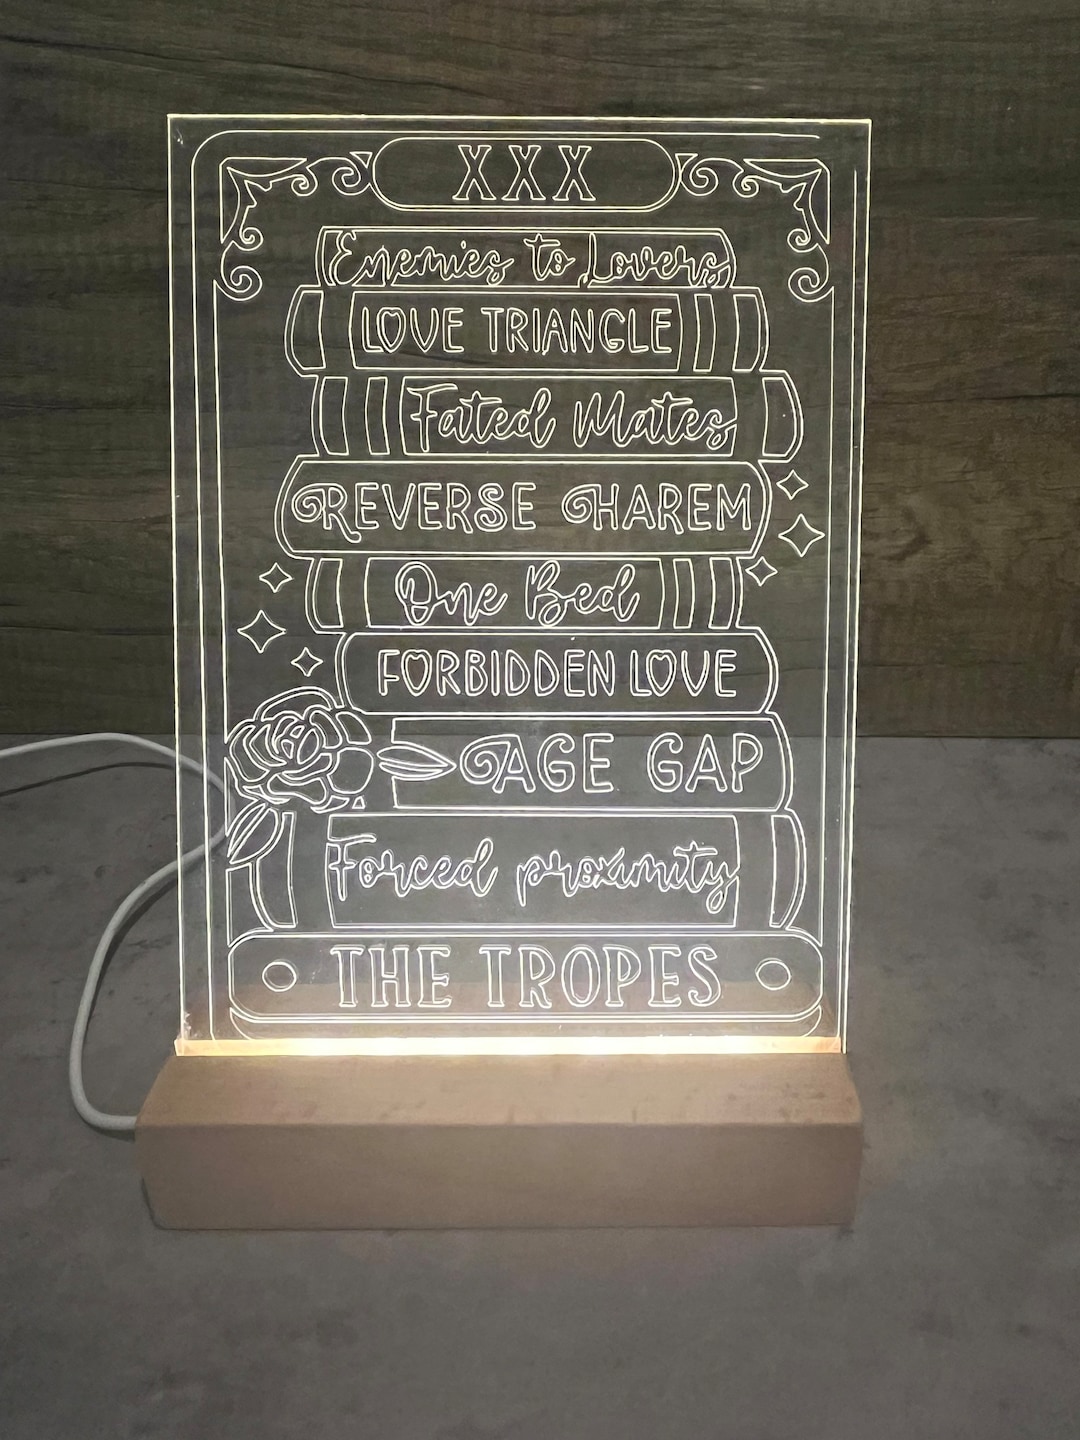 XXX
Enemies to Lovers
LOVE TRIANGLE
Fated Mates
REVERSE HAREM
One Bed
FORBIDDEN LOVE
AGE GAP
Forced proximity
THE TROPES